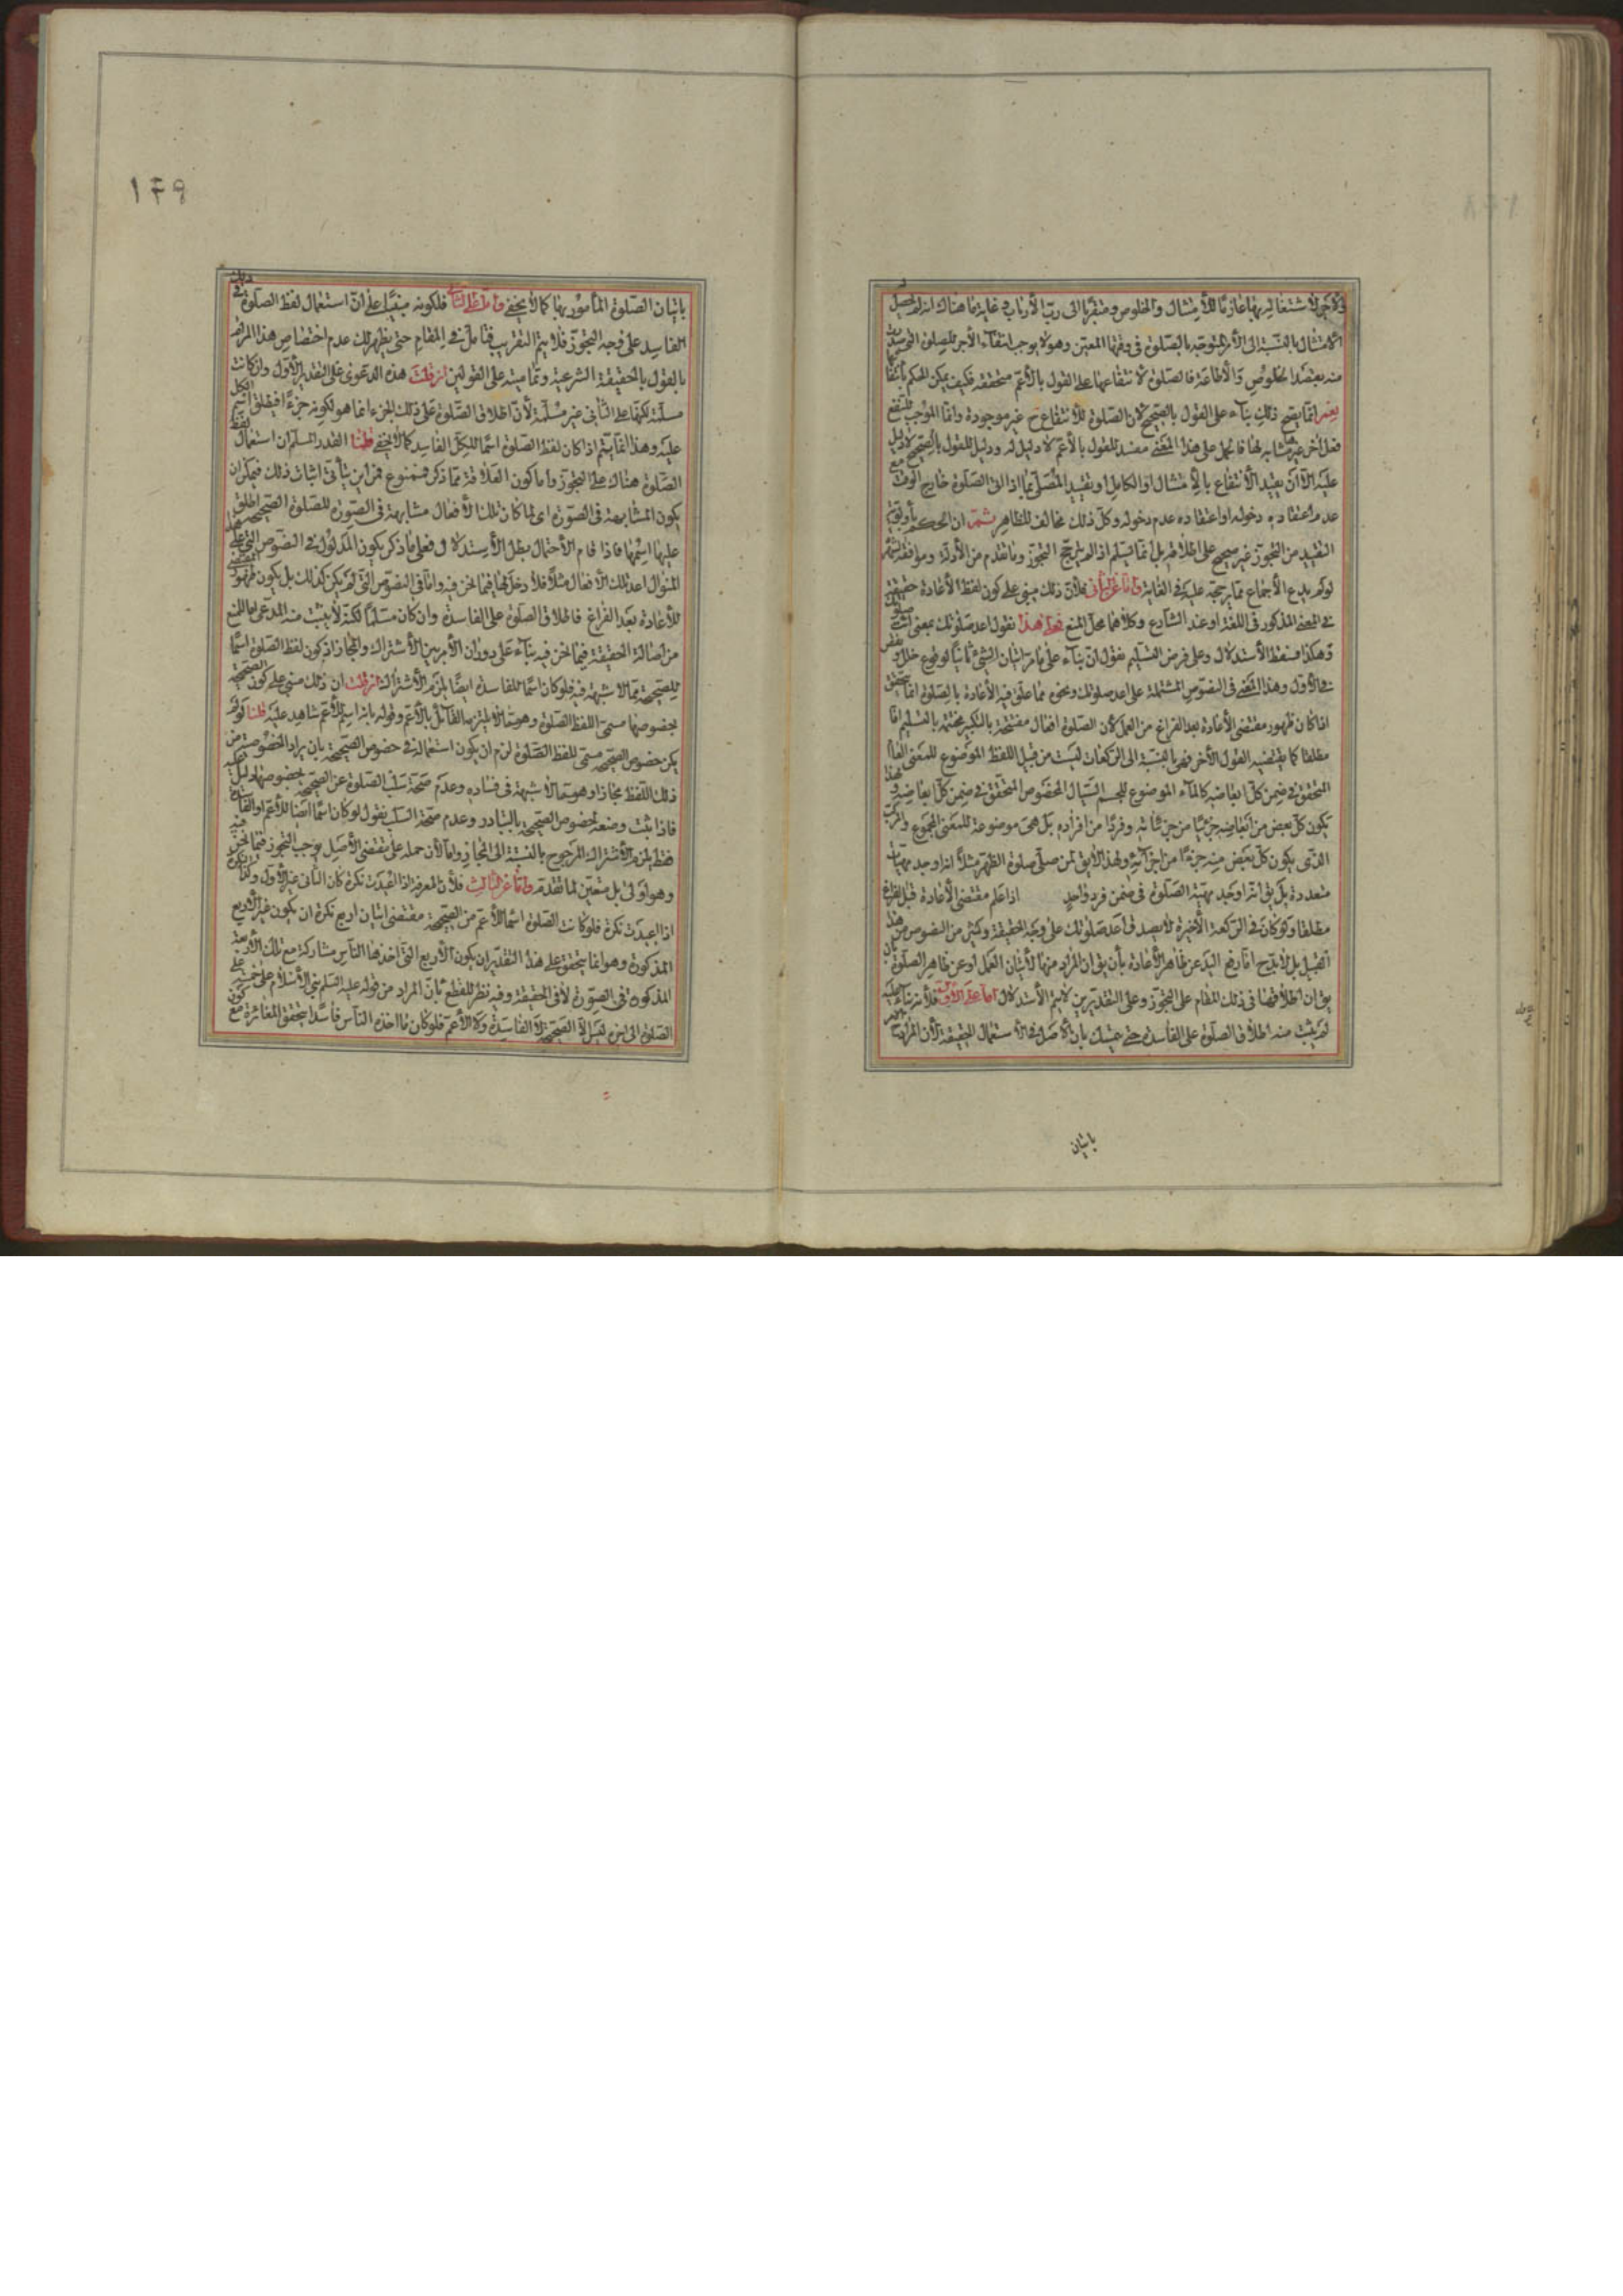 والأجر لاشتغاله بها عازما للأمتثال والخلوص ومتقربا الى رب الأرباب وغاية ما هناك انه لم يحصل
الأمتثال بالنسبة الى الأمر المتوجه بالصلوة فى وقتها المعين وهو لا يوجب انتفاء الأجر للصلوة التى صدرت
منه بقصد الخلوص والأطاعة فالصلوة لانتفاعها على القول بالأعم متحققة فكيف يمكن الحكم بانتفا
نعم انما يصح ذلك بناء على القول بالصحيح لان الصلوة للأنتفاع ح غير موجودة وانما الموجب للنفع
فعل آخر غير مشابه لها فالحمل على هذا المعنى مفسد للقول بالأعم لا دليل له ودليل للقول بالصحيح لا دليل
عليه الا أن يقيد الأنتفاع بالأمتثال او الكامل او يقيد المصلى بما اذا اتى الصلوة خارج الوقت مع
عدم اعتقاده دخوله او اعتقاده عدم دخوله وكل ذلك مخالف للظاهر ثم ان الحكم بأولوية
التقييد من التجوز غير صحيح على اطلاقه بل انما يسلم اذا لم يترجح التجوز وما تقدم من الأدلة وموافقة المشهور
لو لم يدع الأجماع مما يرجحه عليه فى الغاية واما عن الثانى فلأن ذلك مبنى على كون لفظ الأعادة حقيقة
فى المعنى المذكور فى اللغة او عند الشارع وكلاهما محل المنع فعلى هذا نقول اعد صلوتك بمعنى ائت صلوتك
وهكذا فسقط الأستدلال وعلى فرض التسليم نقول ان بناء على ما مر اتيان الشئ ثانيا لوقوع خلل و نقص
فى الأول وهذا المعنى فى النصوص المشتملة على اعد صلوتك ونحوه مما علق فيه الأعادة بالصلوة انما يتحقق
اذا كان ظهور مقتضى الأعادة بعد الفراغ من العمل لأن الصلوة افعال مفتتحة بالتكبير مختتمة بالتسليم اما
مطلقا كما يقتضيه القول الأخر فهى بالنسبة الى الركعات ليست من قبيل اللفظ الموضوع للمعنى العام
المتحقق فى ضمن كل ابعاضه كالماء الموضوع للجسم السيال المخصوص المتحقق فى ضمن كل ابعاضه ولهذا
يكون كل بعض من ابعاضه جزئيا من جزئياته وفردا من افراده بل هى موضوعة للمعنى المجموع والمركب
الذى يكون كل بعض منه جزءا من اجزائه ولهذا لا يق لمن صلى صلوة الظهر مثلا انه اوجد مهيات
متعددة بل يق انه اوجد مهية الصلوة فى ضمن فرد واحد اذا علم مقتضى الأعادة قبل الفراغ
مطلقا ولو كان فى الركعة الأخيرة لا يصدق اعد صلوتك على وجه الحقيقة وكثير من النصوص من هذا
القبيل بل لا بد ح اما رفع اليد عن ظاهر الأعادة بأن يق ان المراد منها الأتيان العمل او عن ظاهر الصلوة بان
يق ان اطلاقها فى ذلك المقام على التجوز وعلى التقديرين لا يتم الأستدلال اما على الأول فلأنه بناء عليه
لم يثبت منه اطلاق الصلوة على الفاسدة حتى يتمسك بان الأصل فى الأستعمال الحقيقة لأن المراد ح
باتيان
١۴٩
باتيان الصلوة المأمور بها كما لا يخفى واما على الثانى فلكونه مبنيا على ان استعمال لفظ الصلوة فى
الفاسد على وجه التجوز فلا يتم التقريب فتأمل فى المقام حتى يظهر لك عدم اختصاص هذا المرام
بالقول بالحقيقة الشرعية وتماميته على القولين ان قلت هذه الدعوى على التقدير الأول وان كانت
مسلمة لكنها على الثانى غير مسلمة لأن اطلاق الصلوة على ذلك الجزء انما هو لكونه جزءا فيطلق اسم الكل
عليه وهذا انما يتم اذا كان لفظ الصلوة اسما للكل الفاسد كما لا يخفى قلنا القدر المسلم ان استعمال لفظ
الصلوة هناك على التجوز واما كون العلاقة مما ذكر فممنوع فمن اين يأتى اثبات ذلك فيمكن ان
يكون المشابهة فى الصورة اى لما كان تلك الأفعال مشابهة فى الصورة للصلوة الصحيحة اطلق
عليها اسمها فاذا قام الأحتمال بطل الأستدلال فعلى ما ذكر يكون المدلول فى النصوص التى على هذا
المنوال اعد تلك الأفعال مثلا فلا دخل لها فيما نحن فيه واما فى النصوص التى لم يكن كذلك بل يكون ظهور المقتضى
للأعادة بعد الفراغ فاطلاق الصلوة على الفاسدة وان كان مسلما لكنه لا يثبت منه المدعى لما للمنع
من اصالة الحقيقة فيما نحن فيه بناء على دوران الأمر بين الأشتراك والمجاز اذ كون لفظ الصلوة اسما
للصحيحة مما لا شبهة فيه فلو كان اسما للفاسدة ايضا لزم الأشتراك ان قلت ان ذلك مبنى على كون الصحيحة
بخصوصها مسمى للفظ الصلوة وهو مما لا يلتزمه القائل بالأعم وقوله بانه اسم للأعم شاهد عليه قلنا لو لم
يكن خصوص الصحيحة مسمى للفظ الصلوة لزم ان يكون استعماله فى خصوص الصحيحة بان يراد الخصوصية من
ذلك اللفظ مجازا وهو مما لا شبهة فى فساده وعدم صحة سلب الصلوة عن الصحيحة بخصوصها دليل عليه
فاذا ثبت وضعه لخصوص الصحيحة بالتبادر وعدم صحة السلب نقول لو كان اسما ايضا للأعم او الفاسدة
فقط لزم الأشتراك المرجوح بالنسبة الى المجاز واما لأن حمله على مقتضى الأصل يوجب التجوز فيما نحن فيه
وهو اولى بل متعين لما تقدم واما عن الثالث فلأن المعرفة اذا اعيدت نكرة كان الثانى غير الأول وكذا النكرة
اذا اعيدت نكرة فلو كانت الصلوة اسما للأعم من الصحيحة مقتضى اتيان اربع نكرة ان يكون غير الأربع
المذكورة وهو انما يتحقق على هذا التقدير ان يكون الأربع التى اخذها الناس مشاركة مع تلك الأربعة
المذكورة فى الصورة لا فى الحقيقة وفيه نظر للقطع بان المراد من قوله عليه السلم بنى الأسلام على خمس على
الصلوة الى اخره ليس الا الصحيحة لا الفاسدة ولا الأعم فلو كان ما اخذه الناس فاسدا يتحقق المغايرة مع كون